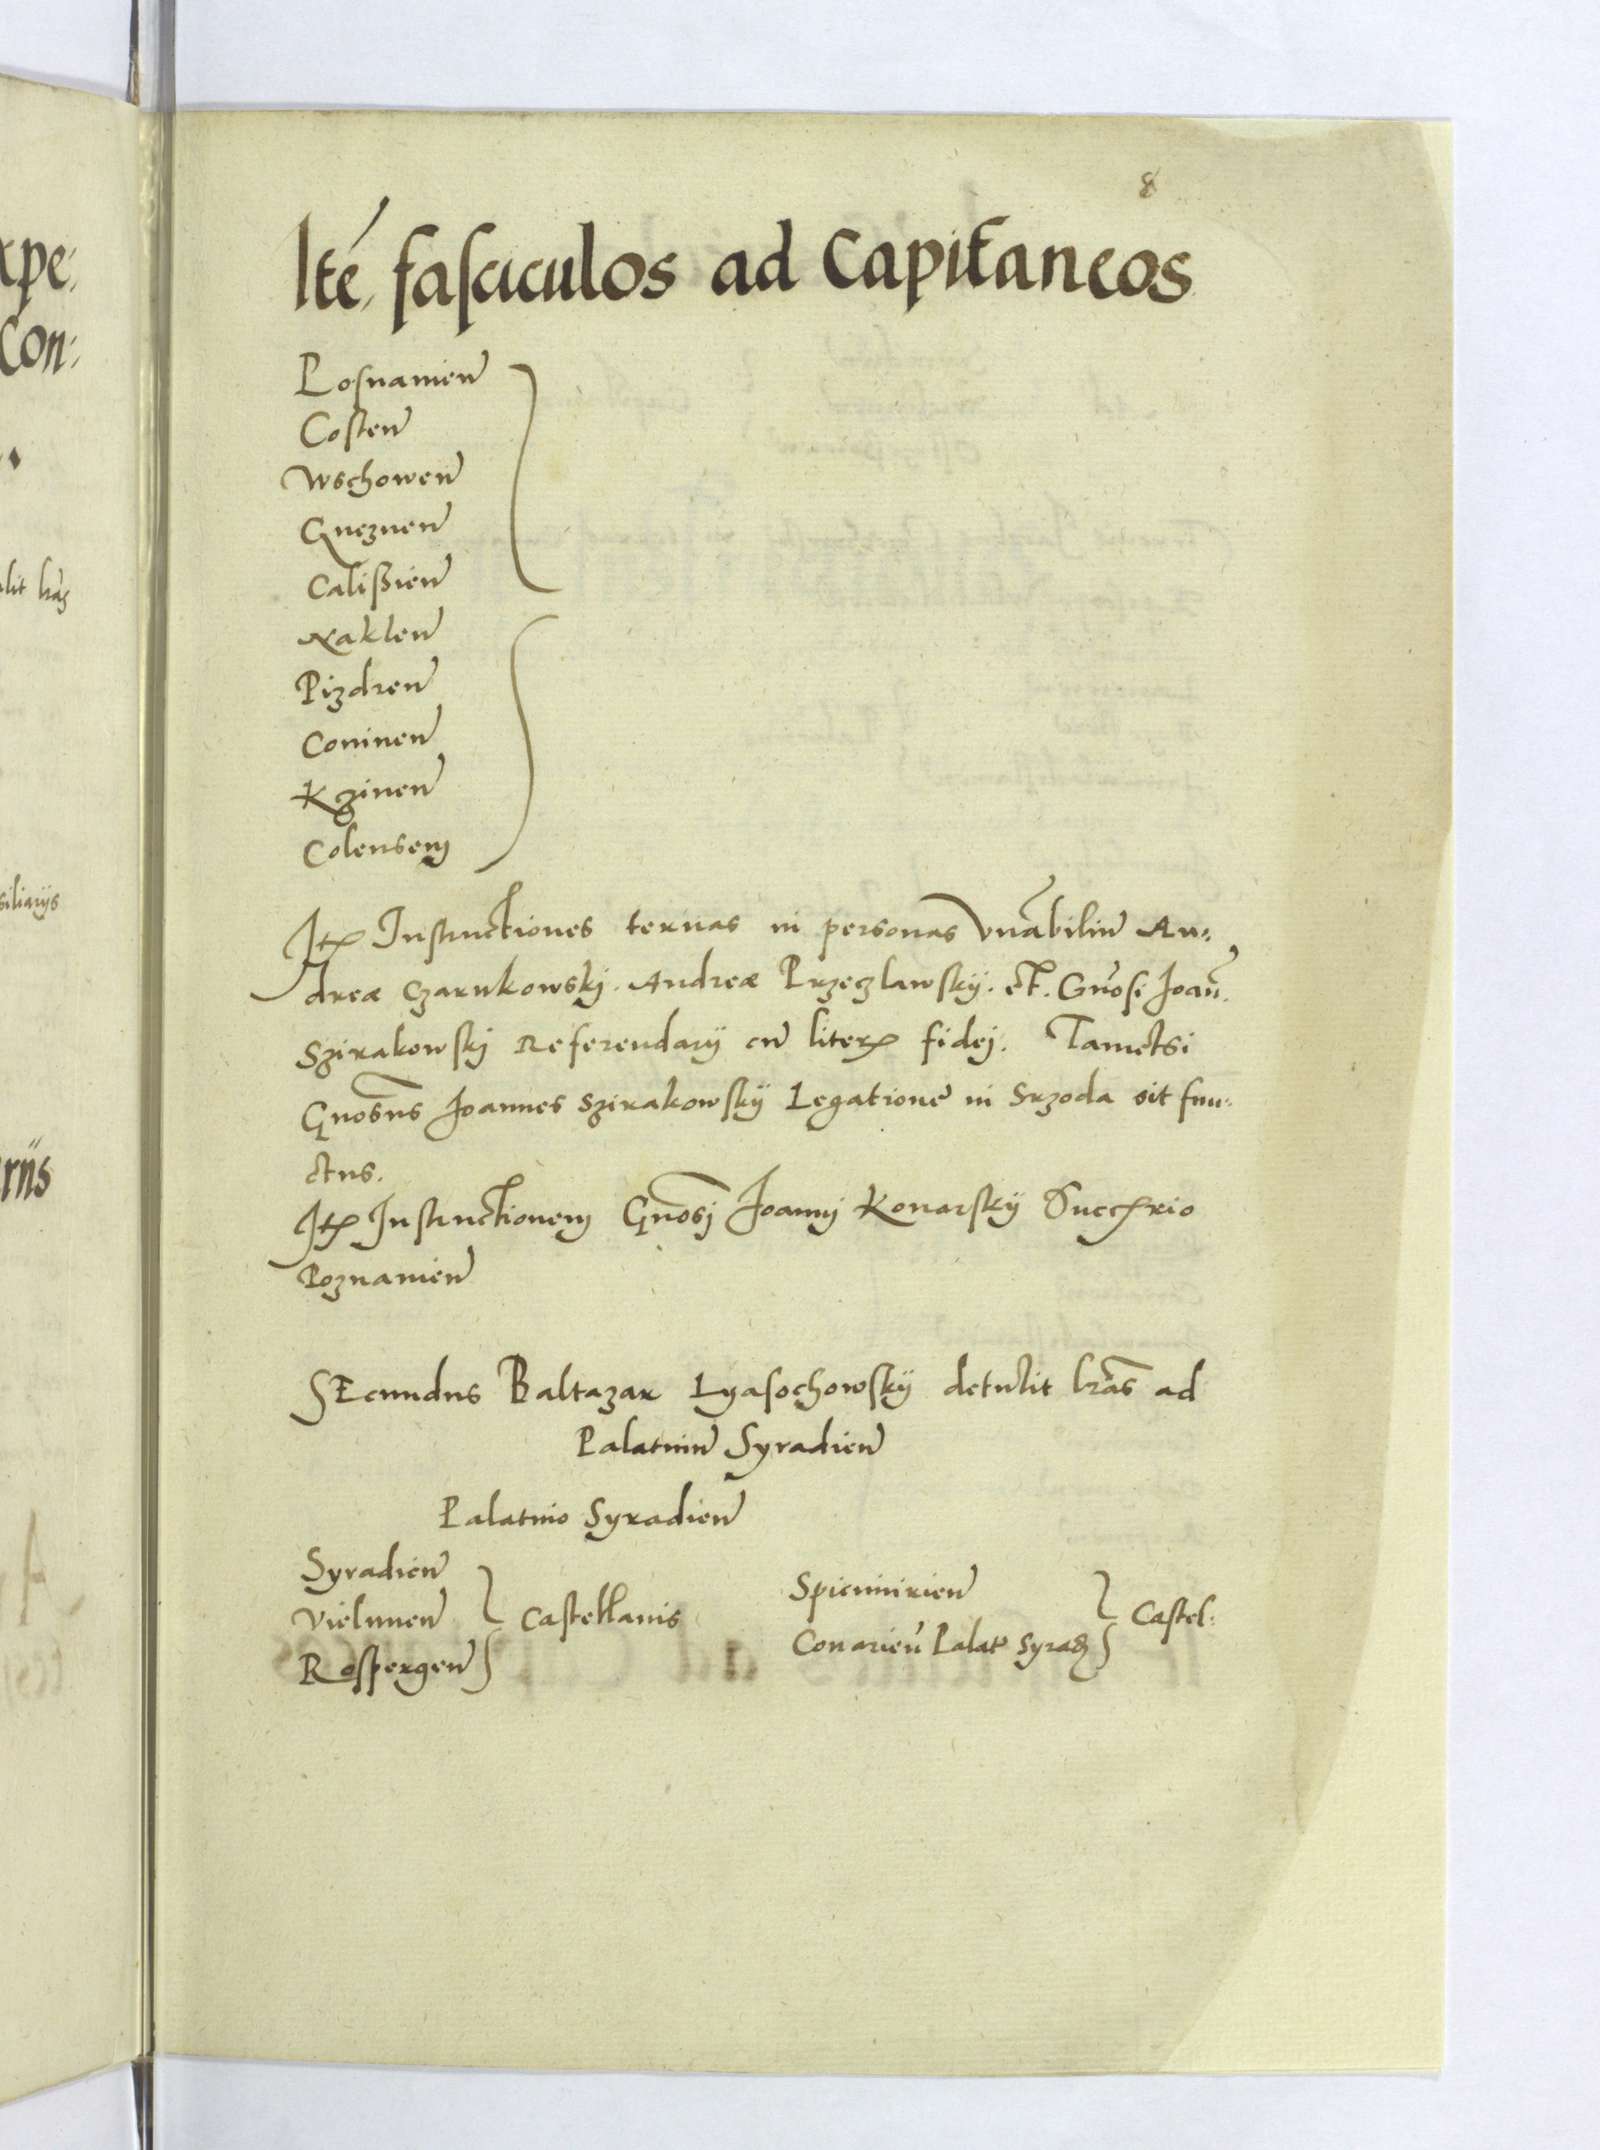 8
Ité fasciculos ad Capitaneos
Posnanien̄
Costen̄
Wschowen̄
Gneznen̄
Calissien̄
Naklen̄
Pizdren̄
Coninen̄
Kzinen̄
Colensem
Itꝫ Instructiones ternas in personas vn̄abiliu̅ An:
dreæ Czarnkowskj. Andreæ Przeczlawskÿ. et. Gn̄osi Joan̄.
Szirakowskj Referendarÿ cu̅ literꝫ fidej. Tametsi
Gnosus Joannes Szirakowskÿ Legatione̅ in Srzoda sit fun:
ctus.
Itꝫ Instructionem Gn̄osj Joannj Konarskÿ Succꝫrio
Poznanien̄
SEcundus Baltazar Lyasochowskÿ detulit lr̄as ad
Palatinu̅ Syradien̄
Palatino Syradien̄
Syradien̄
Vielunen̄
Rospergen̄
Castellanis
Spicimirien̄
Conarien̄ Palat Syrad
Castel:
xpe:
Con:
lit lr̄as
siliarÿs
rïïs